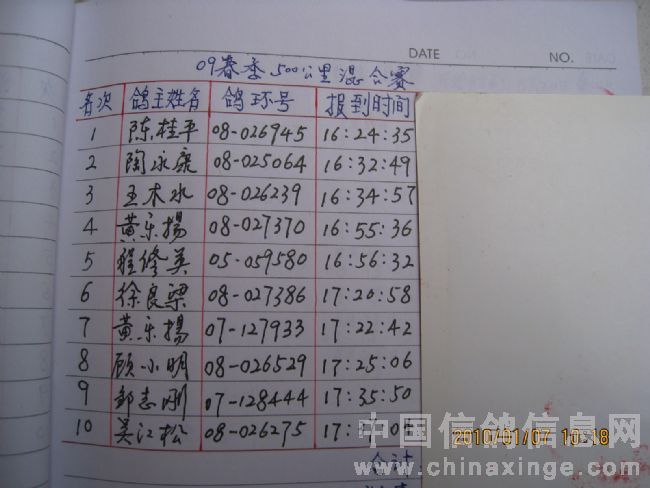 DATE NO.
09春季500公里混合赛
名次 鸽主姓名 鸽环号 报到时间
1 陈桂平 08-026945 16:24:35
2 陶永康 08-025064 16:32:49
3 王木水 08-026239 16:34:57
4 黄乐扬 08-027370 16:55:36
5 程修英 05-059580 16:56:32
6 徐良梁 08-027386 17:20:58
7 黄乐扬 07-127933 17:22:42
8 顾小明 08-026529 17:25:06
9 邹志刚 07-128444 17:35:50
10 吴江松 08-026275 17:
合计
中国信鸽信息网
2010/01/07
www.chinaxinge.com